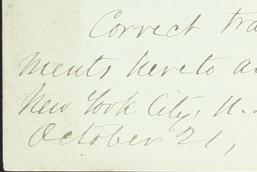 Correct tra
ments hereto a
New York City, N.
October 21,